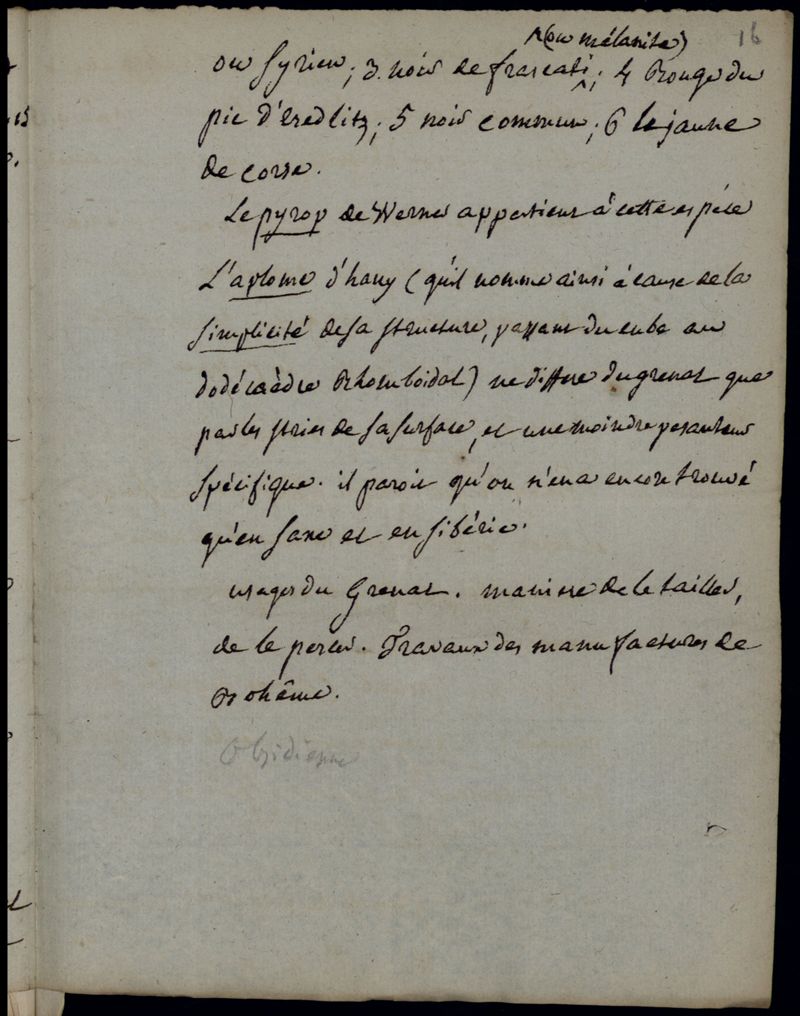 16
(ou mélanite)
ou Syrien; 3. noir de frascati; 4 Rouge du
pic d'Eredlitz; 5 noir commun; 6 le jaune
de corse.
Le pyrop de Werner appartient à cette espéce
L'aplome d'hauy (qu'il nomme ainsi à cause de la
simplicité de sa structure, passant du cube au
dodécaèdre Rhomboidal) ne differe du grenat que
par les stries de sa surface, et une moindre pesanteur
spécifique. il paroit qu'on n'en a encore trouvé
qu'en saxe et en sibérie.
usages du Grenat. maniere de le tailler,
de le percer. Travaux des manufactures de
Bohême.
Obsidienne